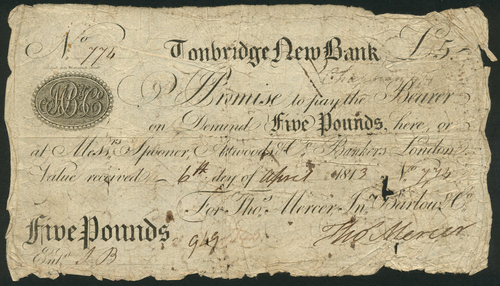 No 774 Tonbridge New Bank £5
I Promise to pay the Bearer
on Demand Five Pounds, here, or
at Messrs Spooner, Attwoods & Co Bankers London
Value received 6th day of April 1813 No 774
For Thos Mercer Jno Barlow & Co
Five Pounds 919 Thos Mercer
Entd A B